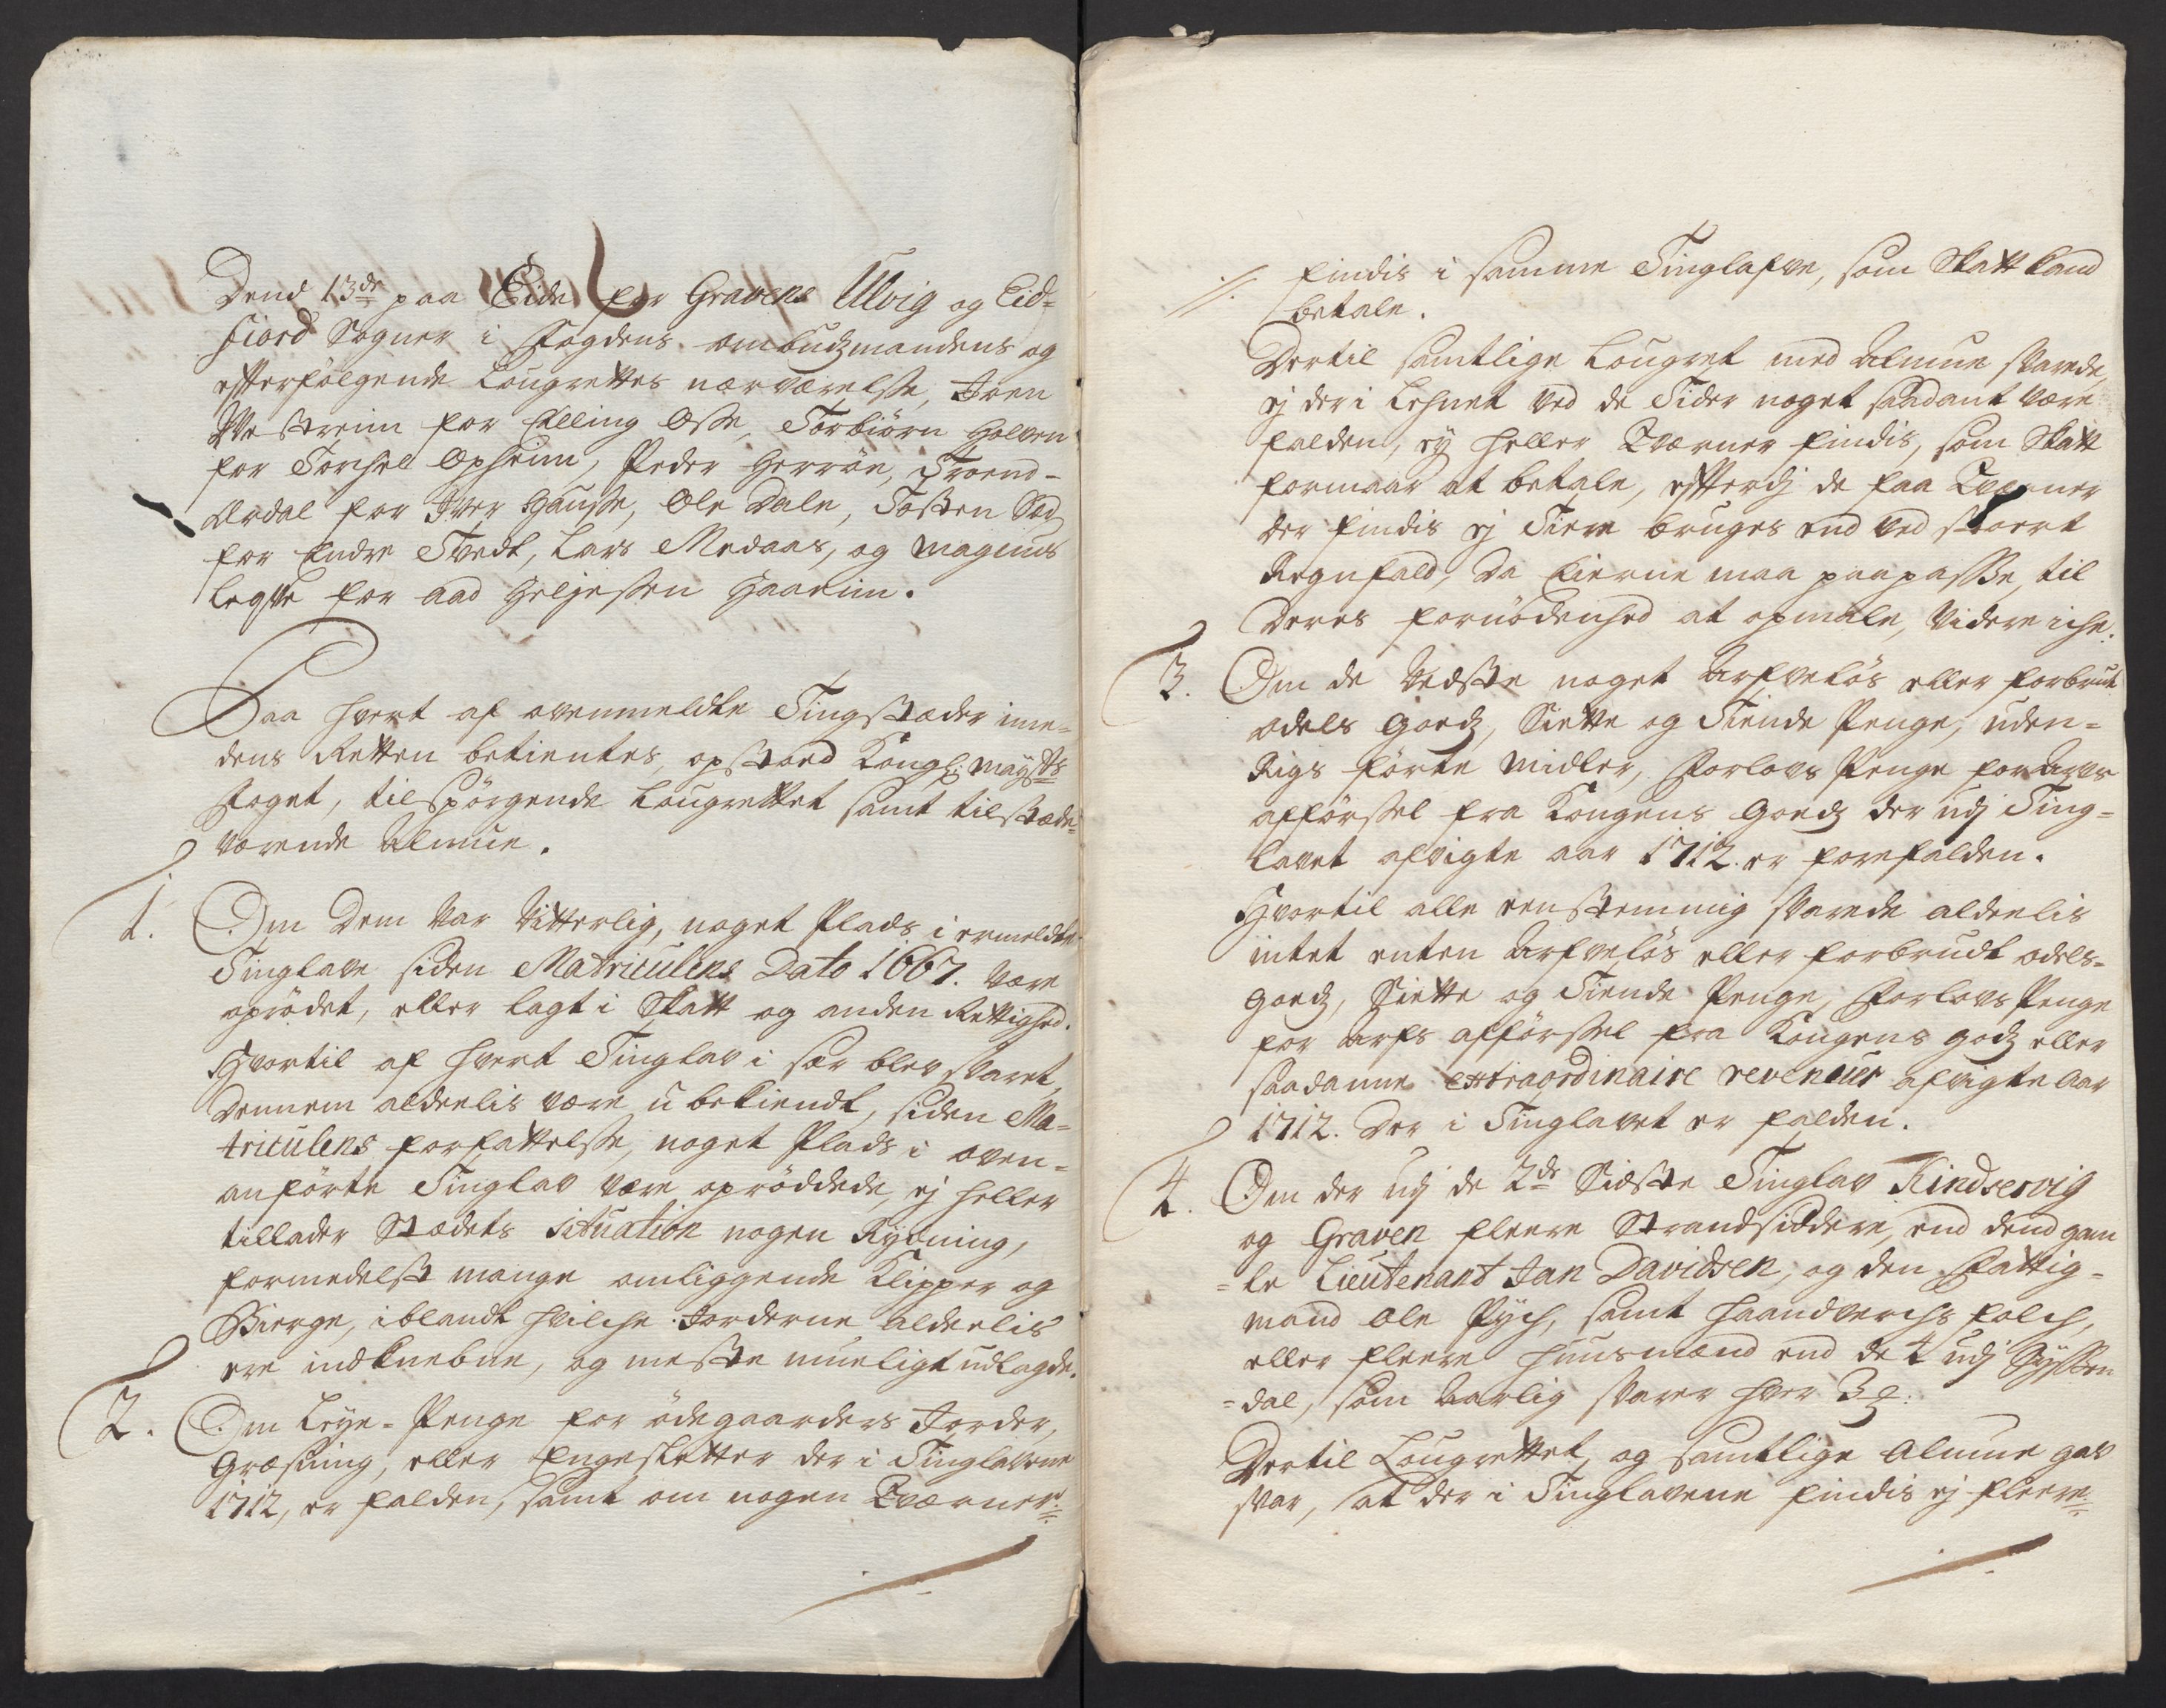 Dend 13de paa Eide for Gravens Ulvig og Eid-
fiord Sogner i Fogdens ombudzmandens og
efterfølgende Laugrettes nærværelsse, Joen
Westreim for Elling Osse, Torbiørn Holven
for Torchel Opheim, Peder Herrøn, Troend-
Ardal for Iver Hausse, Ole Dale, Tosten Sæd
for Endre Tvedt, Lars Medaas, og Magnus
Legste for Aad Heljessen Haarim.
Paa hvert af ovenmeldte Tingstæder ime-
dens Retten betientes, opstoed Kongl: Mayts
Foget, tilspørgende Laugrettet samt tilstæde-
værende Almue.
1. Om dem var Vitterlig, noget Plads i ermeldte
Tinglave siden Matriculens Dato 1667. være
oprødet, eller lagt i Skatt og anden Rettighed.
Hvortil af hvert Tinglav i sær blev svaret,
dennem aldeelis være ubekiendt, siden Ma-
triculens forfattelsse, noget Plads i oven-
anførte Tinglav være oprøddede, ej heller
tillader Stædets Situation nogen Rydning,
formedelst mange omliggende Klipper og
Bierge, iblandt hvilche Jorderne aldeelis
ere indknebne, og meste mueligt udlagde.
2. Om Leye-Penge for ødegaarders Jorder,
Græsning, eller Engesletter der i Tinglavene
1712, er falden, samt om nogen Qværner
findis i samme Tinglafve, som Skatt kand
betale.
Dertil samtlige Laugret med Almue svarede,
ej der i Lehnet ved de Tider noget saadant være
falden, ey heller Qværner findis, som Skatt
formaar at betale, efterdj de faa Qværner
der findis ej Fiere bruges end ved stoert
Regnfald, da Eierne maa paapasse, til
deres fornødenhed at opmale, videre iche.
3. Om de Vidste noget Arfveløs eller forbrut
odels Goedz, Siette og Tiende Penge, uden-
Rigs førte Midler, Forlovs Penge for Arvs
afførssel fra Kongens Goedz der udj Ting-
lavet afvigte aar 1712. er forefalden.
Hvortil alle eenstemmig svarede aldeelis
intet enten Arfveløs eller forbrudt odels-
Goedz, Siette og Tiende Penge, Forlovs Penge
for Arfs afførssel fra Kongens godz eller
saadanne extraordinaire revenuer afvigte Aar
1712. der i Tinglavet er falden.
4. Om der udj de 2de Sidste Tinglav Kindservig
og Graven fleere Strandsiddere, end dend gam
-le Lieutenant Jan Davidsen, og den Fattig-
mand Ole Pych, samt haandverchs folch,
eller fleere huusmænd end de 4 udj Syssen
-dal, som Aarlig svarer hver 3
Dertil Laugrettet, og samtlige Almue gav
svar, at der i Tinglavene findis ej fleere